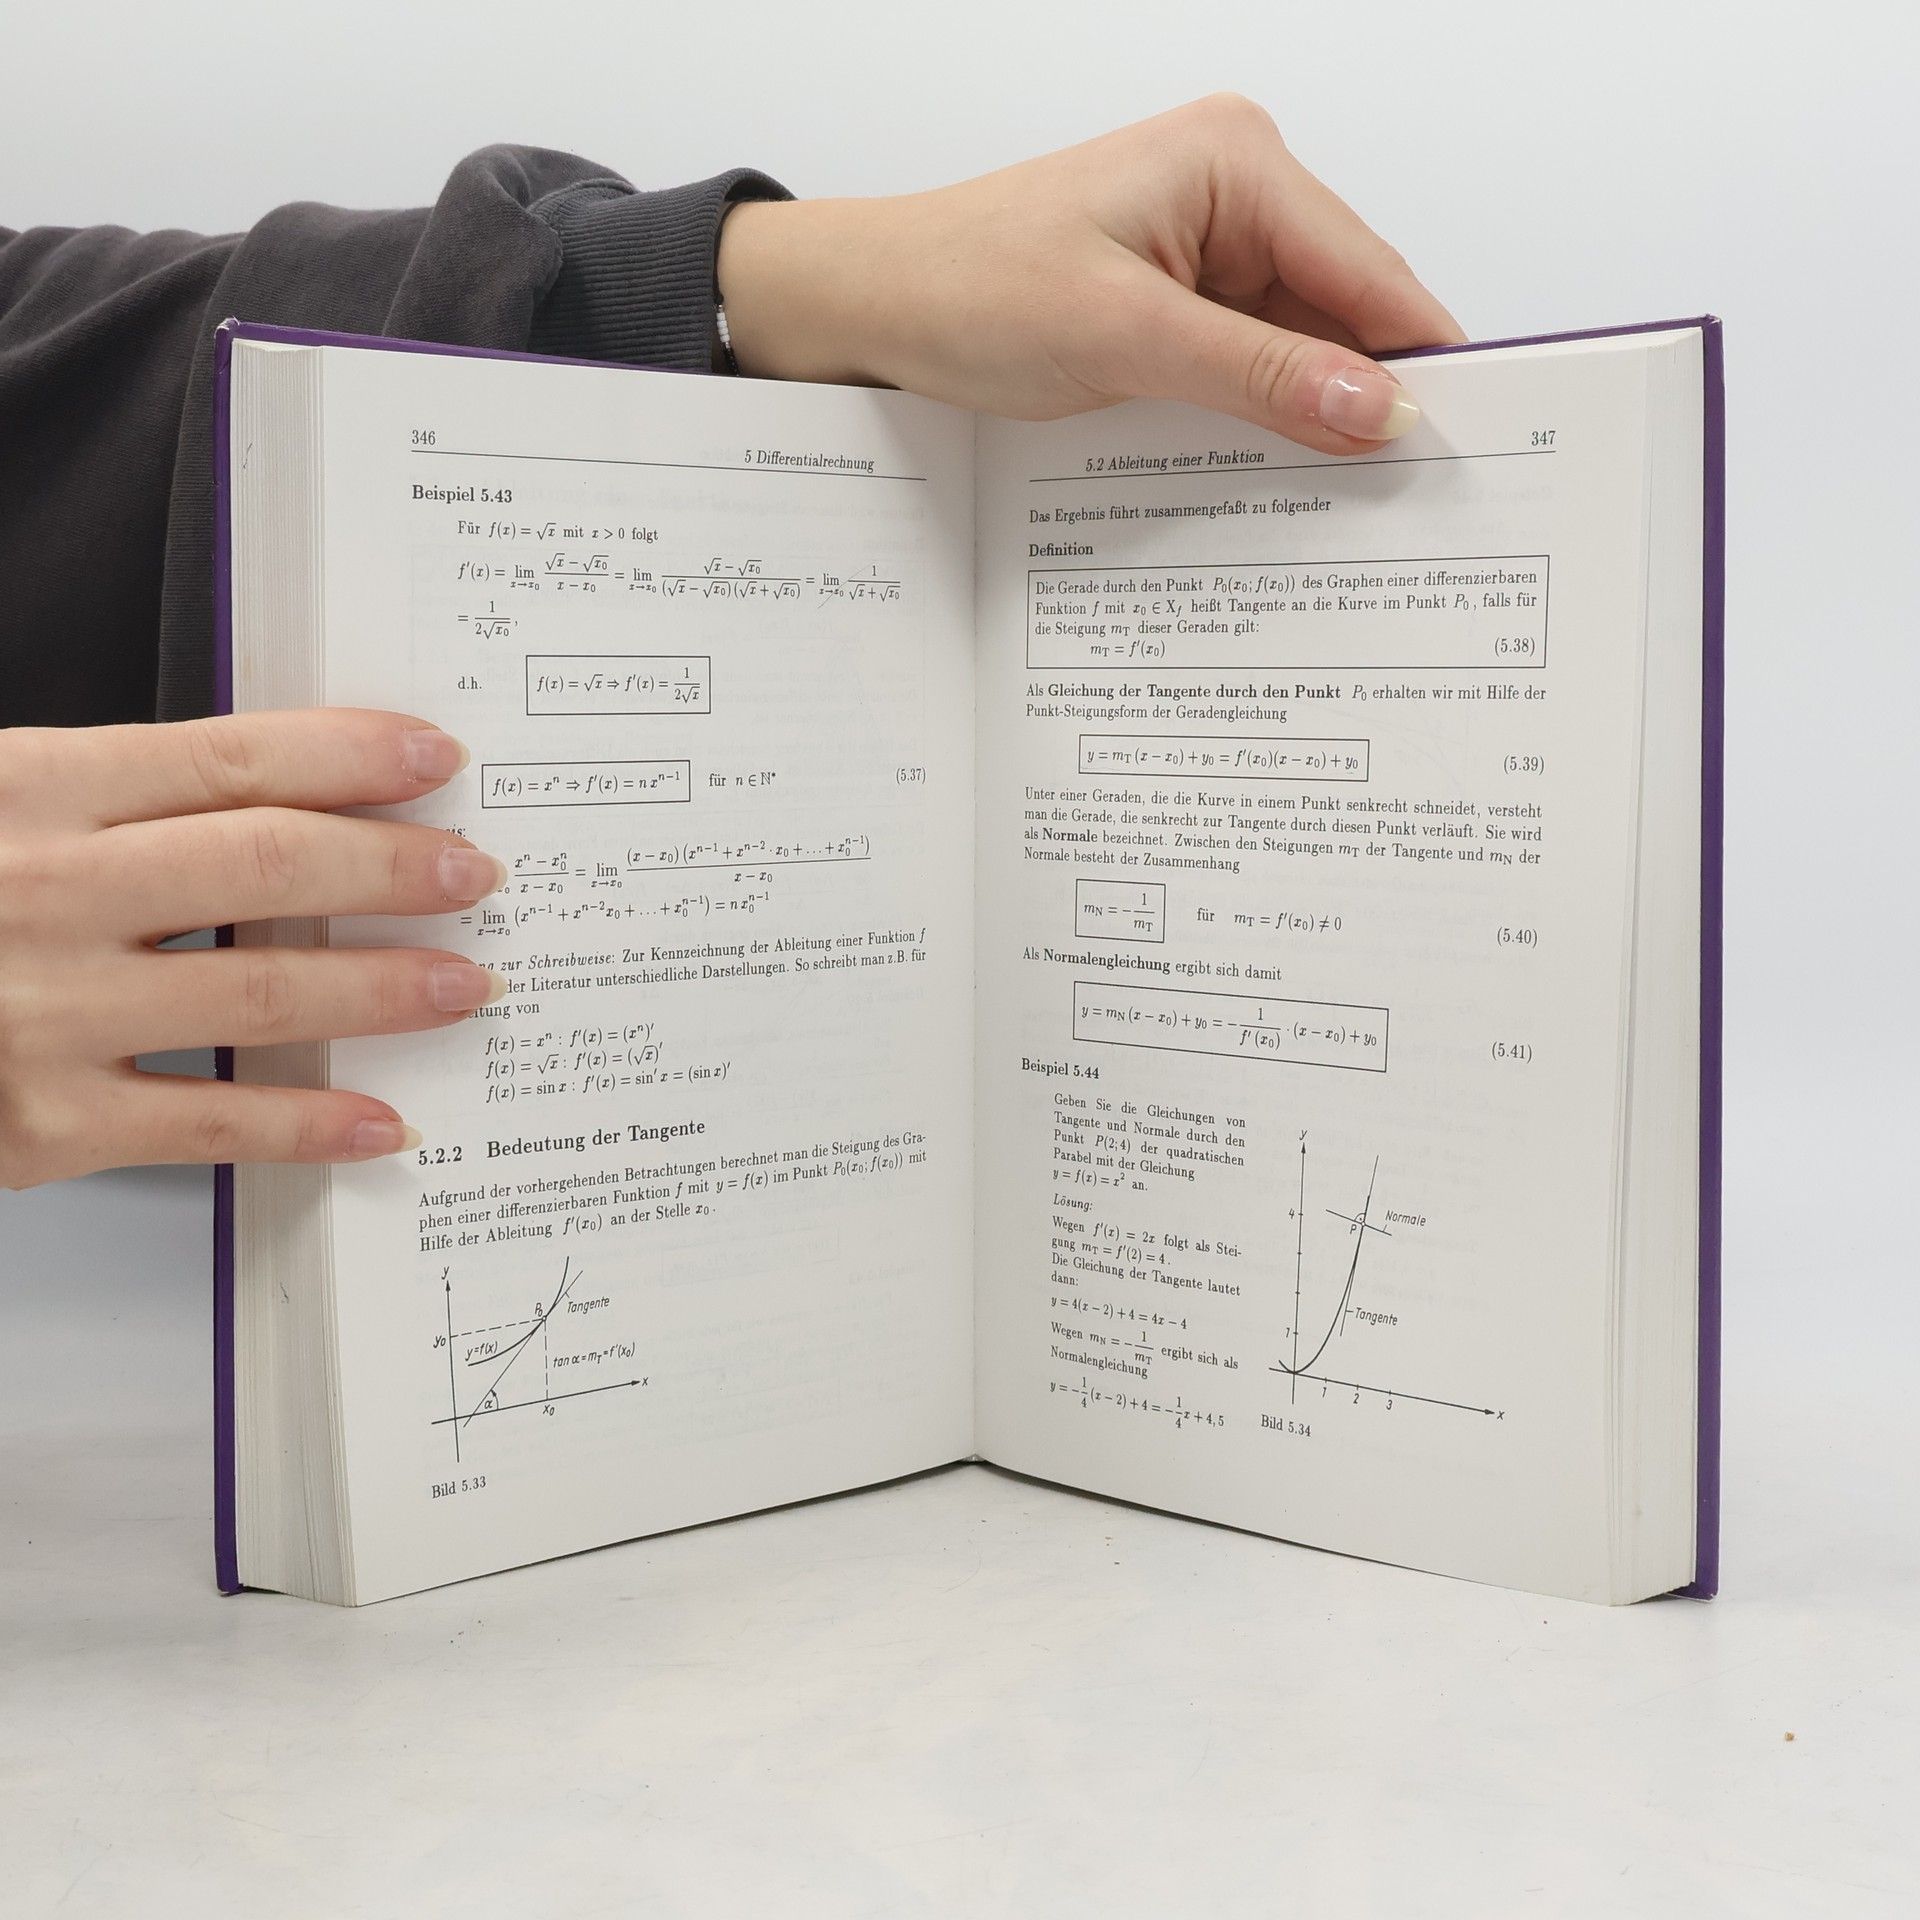 346
5 Differentialrechnung
Beispiel 5.43
Für f(x) = √x mit x > 0 folgt
f′(x) = lim_{x→x₀} (√x − √x₀)/(x − x₀) = lim_{x→x₀} (√x − √x₀)/((√x − √x₀)(√x + √x₀)) = lim_{x→x₀} 1/(√x + √x₀)
= 1/(2√x₀) ,
d.h. f(x) = √x ⇒ f′(x) = 1/(2√x)
f(x) = xⁿ ⇒ f′(x) = n xⁿ⁻¹ für n ∈ ℕ* (5.37)
is:
(xⁿ − x₀ⁿ)/(x − x₀) = lim_{x→x₀} ((x − x₀)(xⁿ⁻¹ + xⁿ⁻² · x₀ + … + x₀ⁿ⁻¹))/(x − x₀)
= lim_{x→x₀} (xⁿ⁻¹ + xⁿ⁻²x₀ + … + x₀ⁿ⁻¹) = n x₀ⁿ⁻¹
zur Schreibweise: Zur Kennzeichnung der Ableitung einer Funktion f
der Literatur unterschiedliche Darstellungen. So schreibt man z.B. für
itung von
f(x) = xⁿ : f′(x) = (xⁿ)′
f(x) = √x : f′(x) = (√x)′
f(x) = sin x : f′(x) = sin′ x = (sin x)′
5.2.2 Bedeutung der Tangente
Aufgrund der vorhergehenden Betrachtungen berechnet man die Steigung des Gra-
phen einer differenzierbaren Funktion f mit y = f(x) im Punkt P₀(x₀; f(x₀)) mit
Hilfe der Ableitung f′(x₀) an der Stelle x₀ .
y
P₀
Tangente
y₀
y=f(x)
tan α = m_T = f′(x₀)
α
x₀
x
Bild 5.33
5.2 Ableitung einer Funktion
347
Das Ergebnis führt zusammengefaßt zu folgender
Definition
Die Gerade durch den Punkt P₀(x₀; f(x₀)) des Graphen einer differenzierbaren
Funktion f mit x₀ ∈ X_f heißt Tangente an die Kurve im Punkt P₀ , falls für
die Steigung m_T dieser Geraden gilt:
m_T = f′(x₀) (5.38)
Als Gleichung der Tangente durch den Punkt P₀ erhalten wir mit Hilfe der
Punkt-Steigungsform der Geradengleichung
y = m_T (x − x₀) + y₀ = f′(x₀)(x − x₀) + y₀ (5.39)
Unter einer Geraden, die die Kurve in einem Punkt senkrecht schneidet, versteht
man die Gerade, die senkrecht zur Tangente durch diesen Punkt verläuft. Sie wird
als Normale bezeichnet. Zwischen den Steigungen m_T der Tangente und m_N der
Normale besteht der Zusammenhang
m_N = −1/m_T für m_T = f′(x₀) ≠ 0 (5.40)
Als Normalengleichung ergibt sich damit
y = m_N (x − x₀) + y₀ = −1/f′(x₀) · (x − x₀) + y₀ (5.41)
Beispiel 5.44
Geben Sie die Gleichungen von
Tangente und Normale durch den
Punkt P(2; 4) der quadratischen
Parabel mit der Gleichung
y = f(x) = x² an.
Lösung:
Wegen f′(x) = 2x folgt als Stei-
gung m_T = f′(2) = 4 .
Die Gleichung der Tangente lautet
dann:
y = 4(x − 2) + 4 = 4x − 4
Wegen m_N = −1/m_T ergibt sich als
Normalengleichung
y = −1/4 (x − 2) + 4 = −1/4 x + 4,5
y
4
P
Normale
Tangente
1
1
2
3
x
Bild 5.34